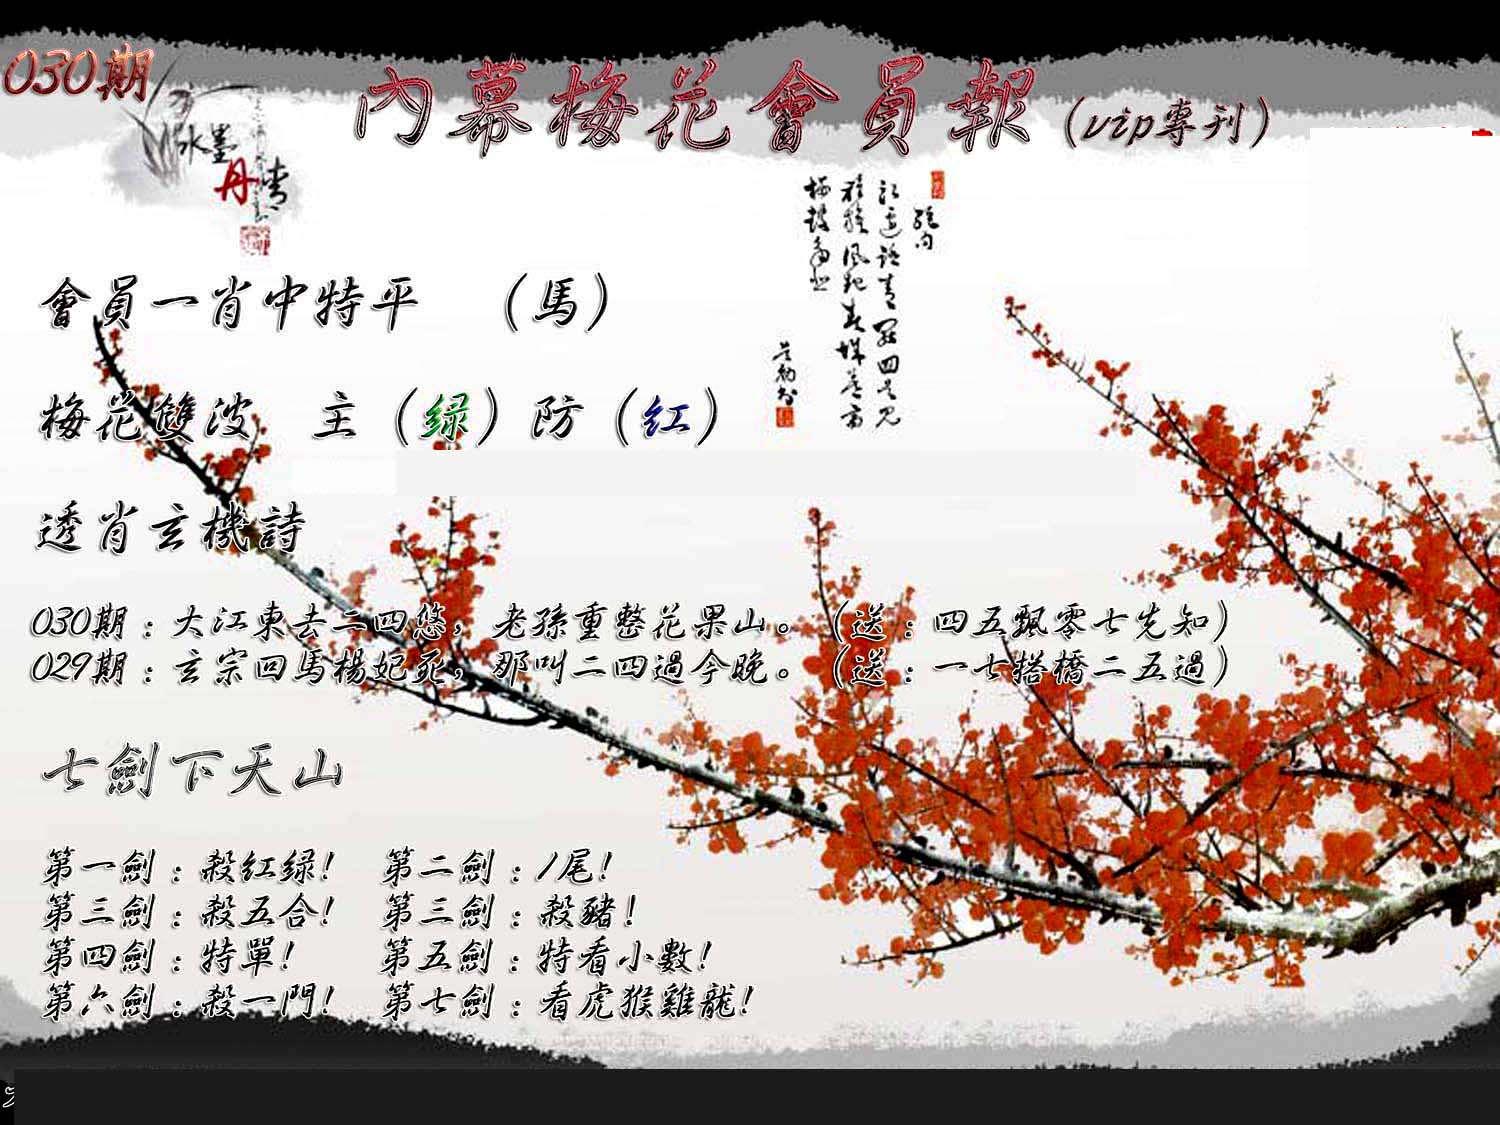 030期
內幕梅花會員報（vip專刊）
水墨
丹青
絕句
會員一肖中特平　（馬）
梅花雙波　主（绿）防（紅）
透肖玄機詩
030期：大江東去二四悠，老孫重整花果山。（送：四五飄零七先知）
029期：玄宗回馬楊妃死，那叫二四過今晚。（送：一七搭橋二五過）
七劍下天山
第一劍：殺紅绿！　第二劍：1尾！
第三劍：殺五合！　第三劍：殺豬！
第四劍：特單！　第五劍：特看小數！
第六劍：殺一門！　第七劍：看虎猴雞龍！